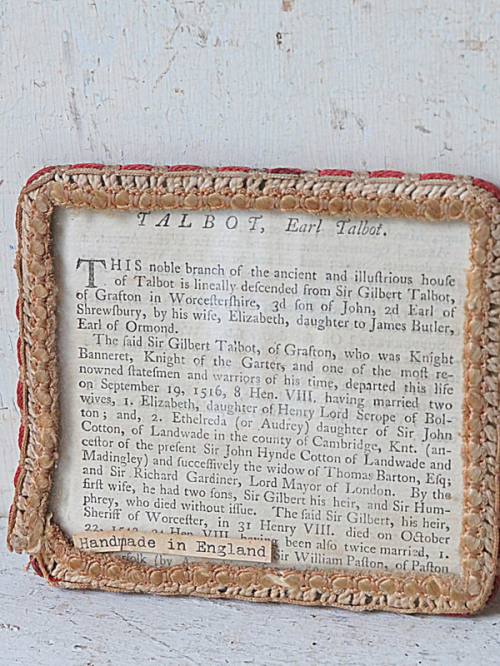 TALBOT, Earl Talbot.
THIS noble branch of the ancient and illuſtrious houſe
of Talbot is lineally deſcended from Sir Gilbert Talbot,
of Grafton in Worceſterſhire, 3d ſon of John, 2d Earl of
Shrewſbury, by his wife, Elizabeth, daughter to James Butler,
Earl of Ormond.
The ſaid Sir Gilbert Talbot, of Grafton, who was Knight
Banneret, Knight of the Garter, and one of the moſt re-
nowned ſtateſmen and warriors of his time, departed this life
on September 19, 1516, 8 Hen. VIII. having married two
wives, 1. Elizabeth, daughter of Henry Lord Scrope of Bol-
ton; and, 2. Etheldreda (or Audrey) daughter of Sir John
Cotton, of Landwade in the county of Cambridge, Knt. (an-
ceſtor of the preſent Sir John Hynde Cotton of Landwade and
Madingley) and ſucceſſively the widow of Thomas Barton, Eſq;
and Sir Richard Gardiner, Lord Mayor of London. By the
firſt wife, he had two ſons, Sir Gilbert his heir, and Sir Hum-
phrey, who died without iſſue. The ſaid Sir Gilbert, his heir,
Sheriff of Worceſter, in 31 Henry VIII. died on October
22, Hen. VIII. having been alſo twice married, 1.
Sir William Paſton, of Paſton
(by
Handmade in England